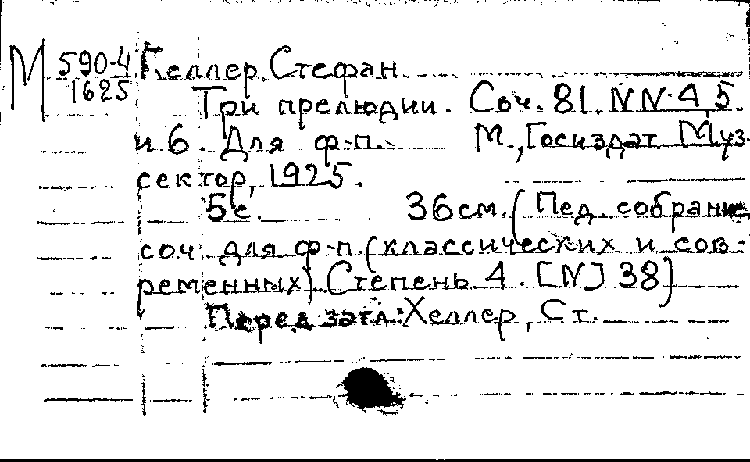 М 590-4 Геллер Стефан
1625
Три прелюдии. Соч. 81. NN 4, 5
и 6. Для ф-п. М., Госиздат Муз.
сектор, 1925.
5 с. 36 см. (Пед. собрание
соч. для ф-п. (классических и сов-
ременных) Степень 4. [N] 38)
Перед загл.: Хеллер, Ст.